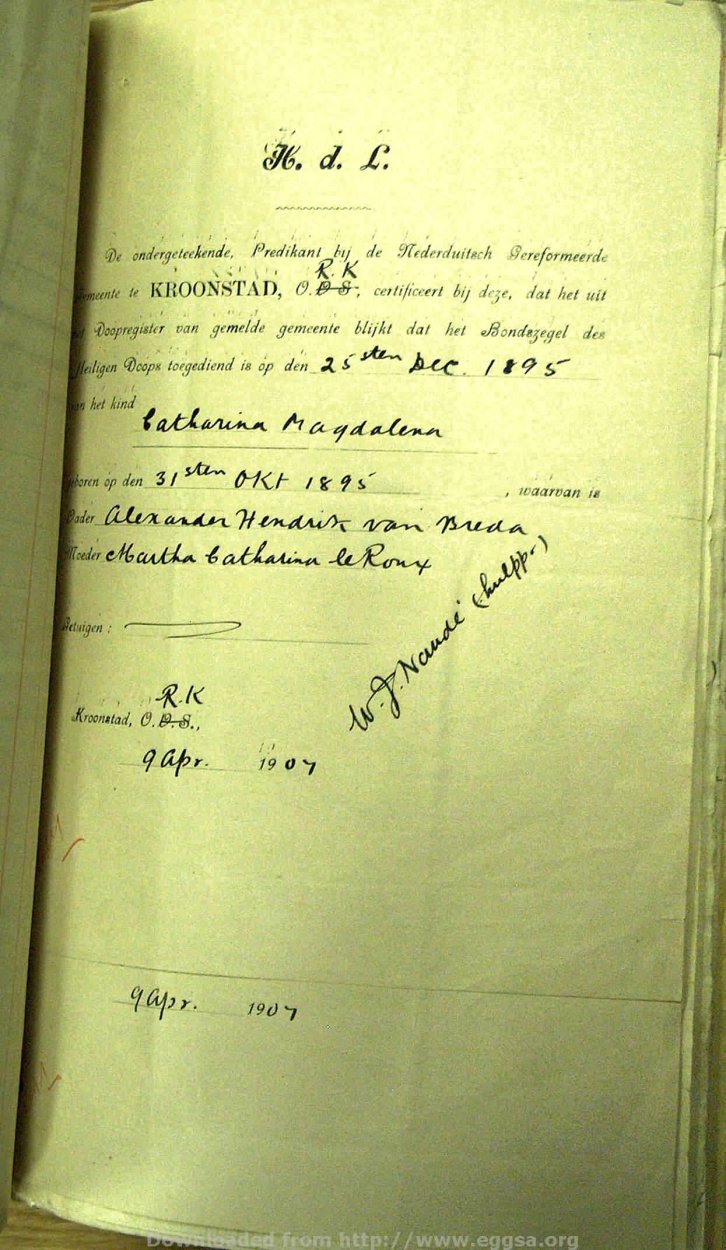 H. d. L.
De ondergeteekende, Predikant bij de Nederduitsch Gereformeerde
R. K
emeente te KROONSTAD, O. D. S., certificeert bij deze, dat het uit
Doopregister van gemelde gemeente blijkt dat het Bondszegel des
Heiligen Doops toegediend is op den 25sten Dec. 1895
van het kind
Catharina Magdalena
geboren op den 31sten Okt 1895, waarvan is
Vader Alexander Hendrik van Breda
Moeder Martha Catharina le Roux
Getuigen :
W. J. Naudé (hulppr.)
R. K
Kroonstad, O. D. S.,
9 Apr. 1907
9 Apr. 1907
Downloaded from http://www.eggsa.org